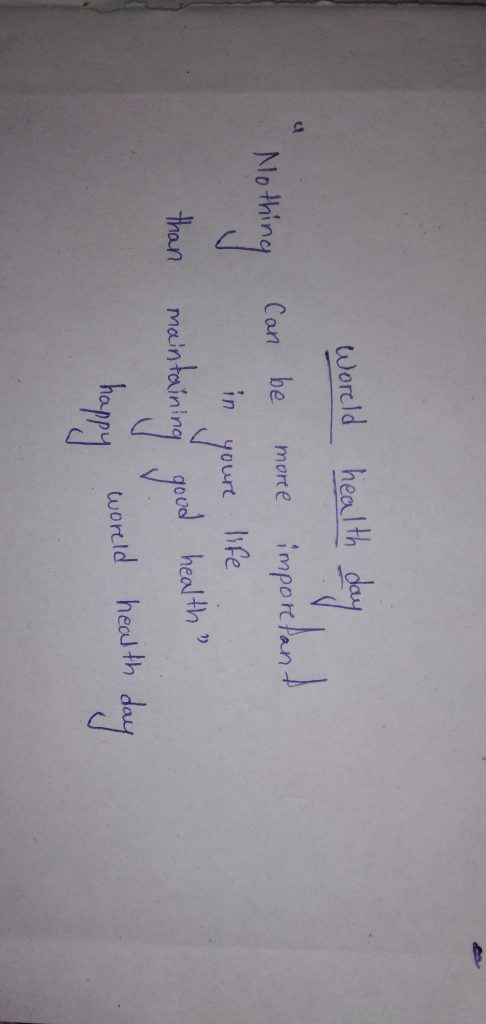 World health day
"Nothing can be more important
in your life
than maintaining good health"
happy world health day